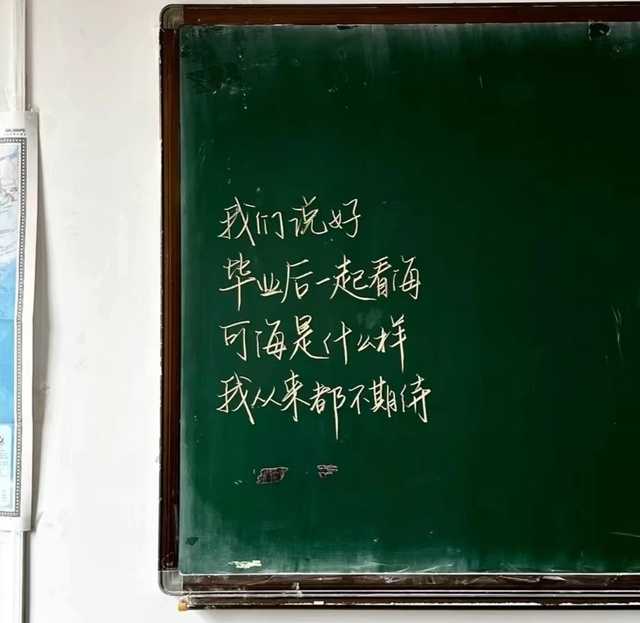 我们说好
毕业后一起看海
可海是什么样
我从来都不期待